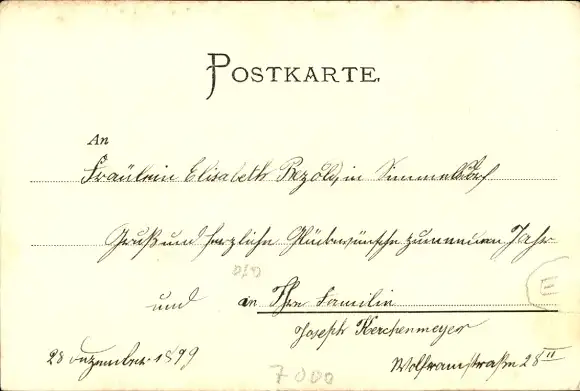 POSTKARTE.
An
Fräulein Elisabeth Bezold, in Simmelsdorf
Gruß und herzliche Glückwünsche zum neuen Jahr
und an Ihre Familie
Joseph Kerchenmeyer
28 Dezember 1899
Wolframstraße 28 II
E
7000